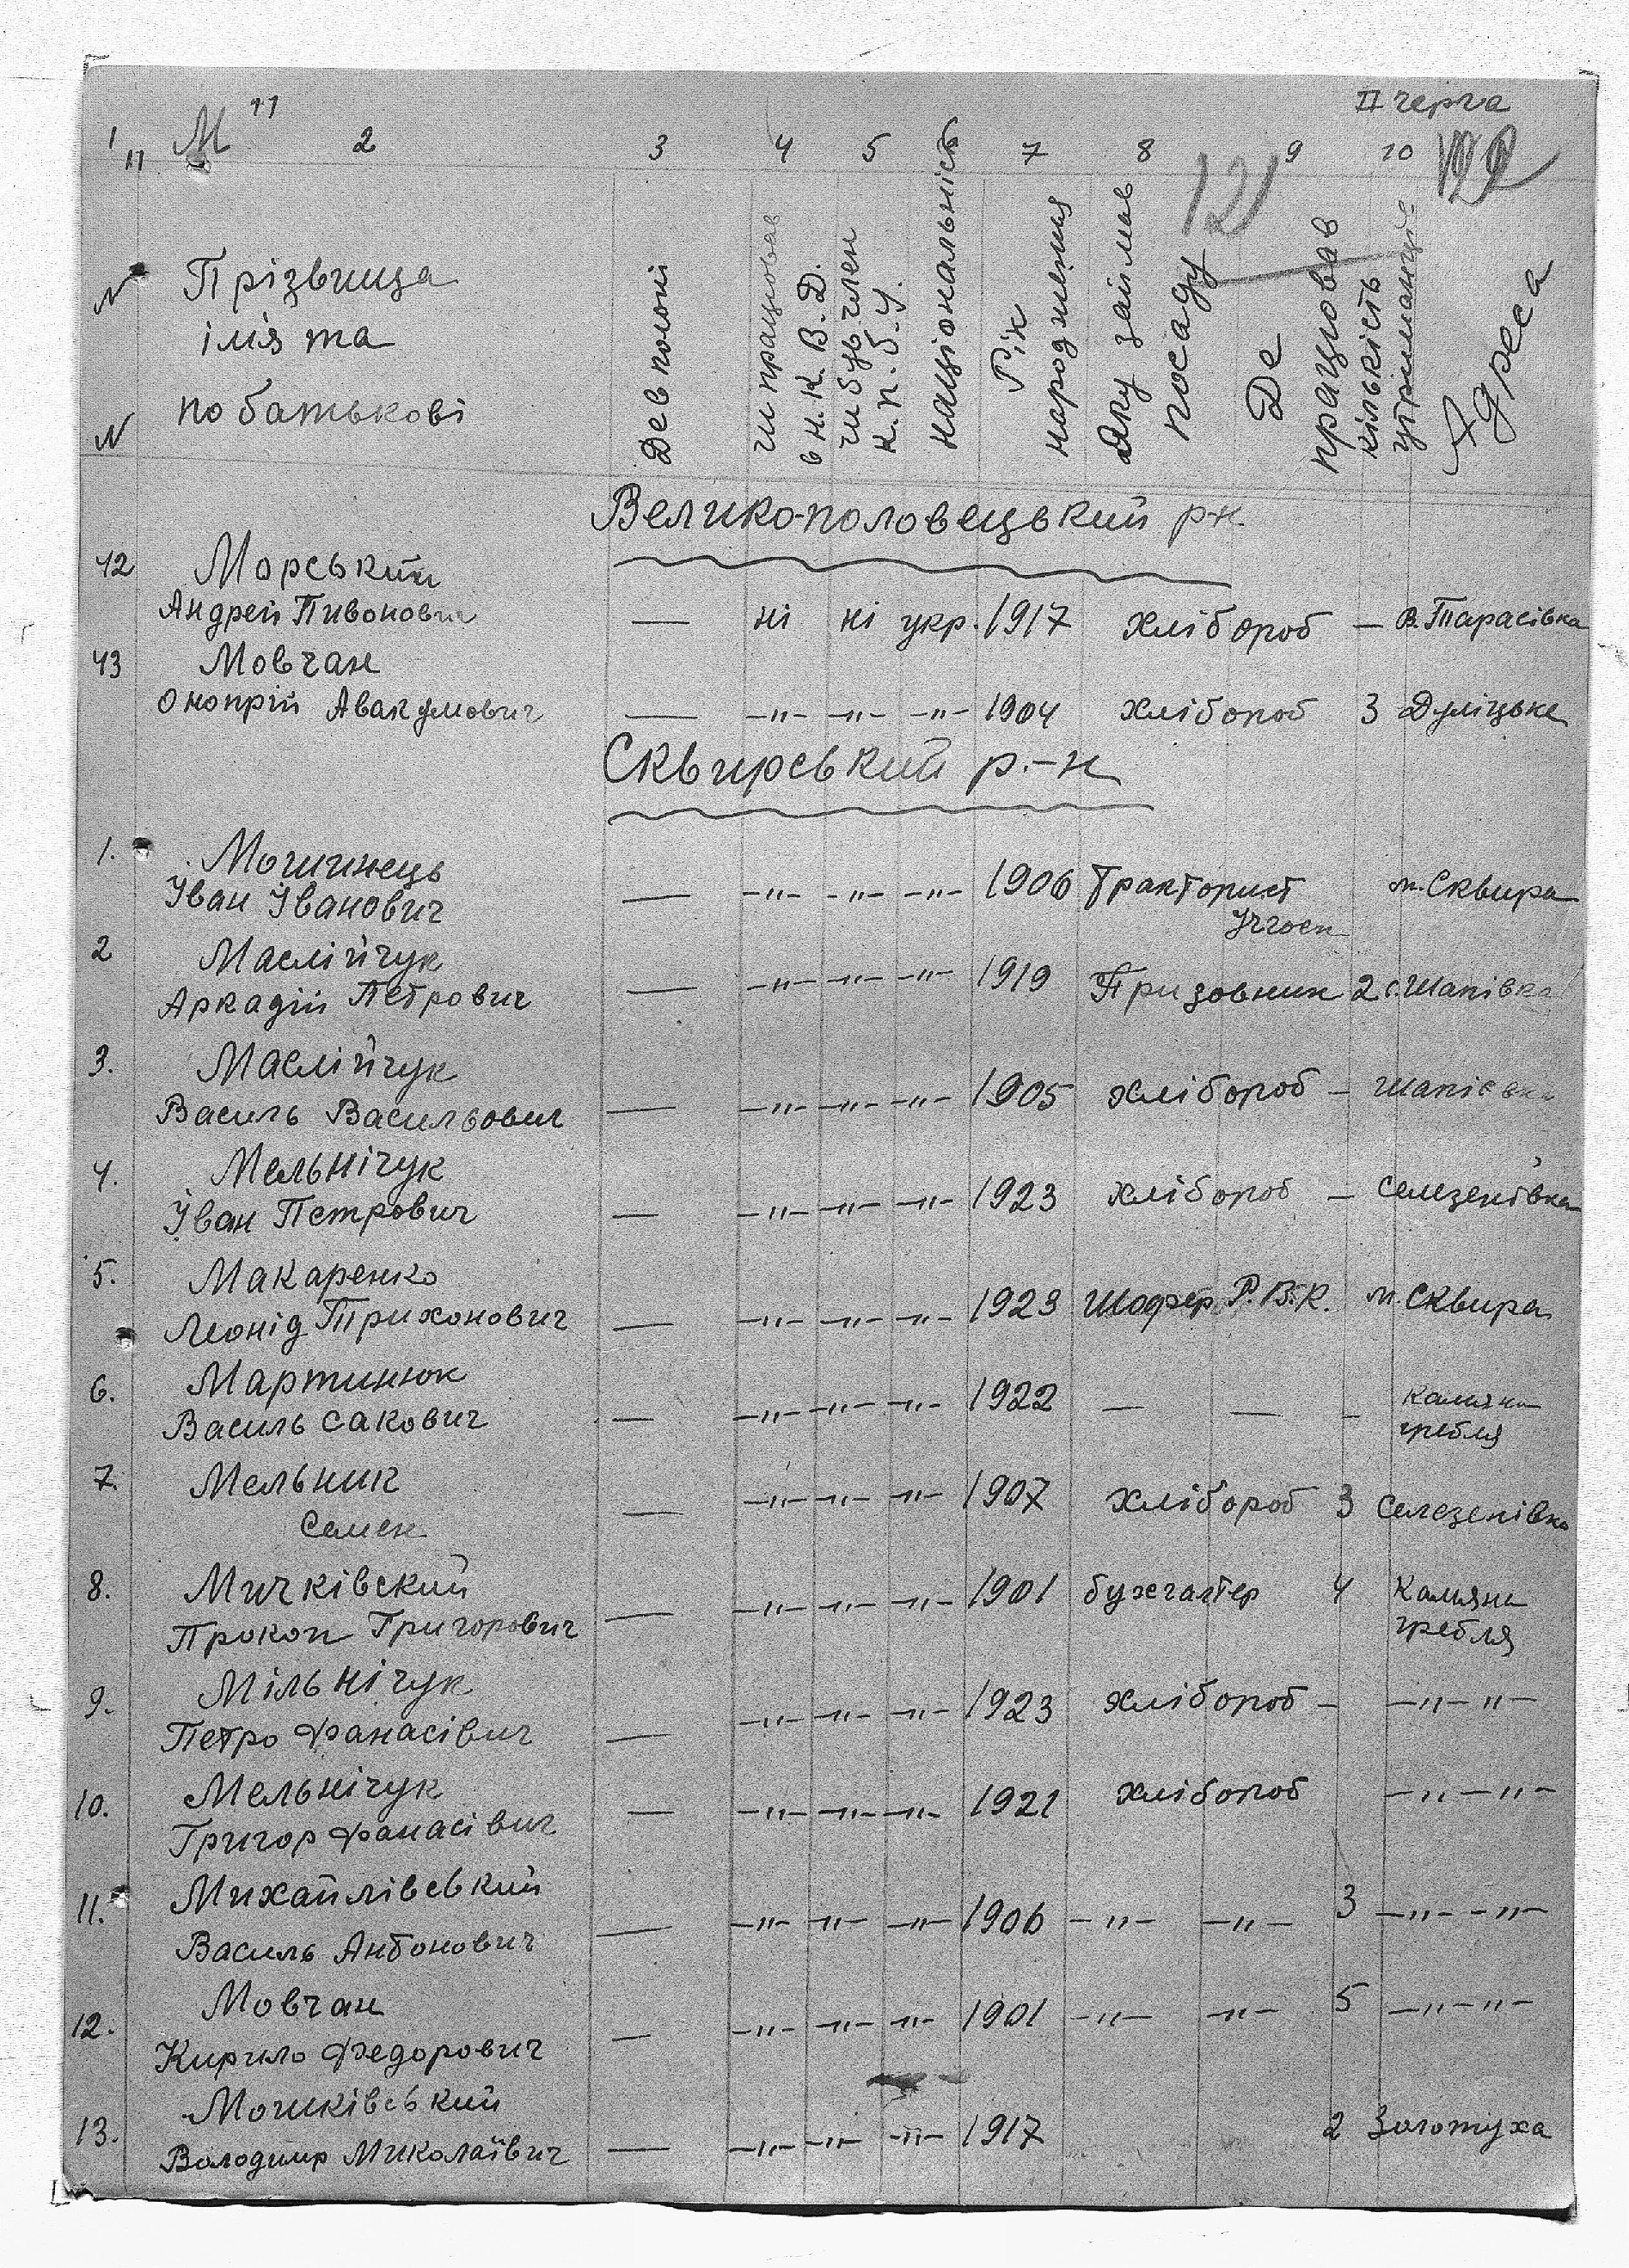 II черга
"М"
1 2 3 4 5 6 7 8 9 10
121
N N
Прізвища
імя та
по батькові
Де в полоні
чи працював в Н.К.В.Д.
чи був член К.П.б.У.
національність
Рік народження
Яку займав посаду
Де працював
кількість утриманців
Адреса
Велико-половецький р-н.
42 Морський
Андрей Пивонович — ні ні укр. 1917 хлібороб — В.Тарасівка
43 Мовчан
Онопрій Авакумович — -"- -"- -"- 1904 хлібороб 3 Дуліцьке
Сквирський р.-н
1. Мошинець
Іван Іванович — -"- -"- -"- 1906 Тракторист м. Сквира
Учгосп
2 Маслійчук
Аркадій Петрович — -"- -"- -"- 1919 Призовник 2 с. Шапівка
3. Маслійчук
Василь Васильович — -"- -"- -"- 1905 хлібороб — Шапівка
4. Мельнічук
Іван Петрович — -"- -"- -"- 1923 хлібороб — Селезенівка
5. Макаренко
Леонід Трихонович — -"- -"- -"- 1923 Шофер Р.В.К. м. Сквира
6. Мартинюк
Василь Сакович — -"- -"- -"- 1922 — — - Камяна
гребля
7. Мельник
Семен — -"- -"- -"- 1907 хлібороб 3 Селезенівка
8. Мичківский
Прокоп Григорович — -"- -"- -"- 1901 бухгалтер 4 Камяна
гребля
9. Мільнічук
Петро Фанасівич — -"- -"- -"- 1923 хлібороб - -"- "-
10. Мельнічук
Григор Фанасівич — -"- -"- -"- 1921 хлібороб -"- "-
11. Михайлівський
Василь Антонович — -"- -"- -"- 1906 -"- -"- 3 -"- -"-
12. Мовчан
Кирило Федорович — -"- -"- -"- 1901 -"- -"- 5 -"- "-
13. Мошківський
Володимир Миколаївич — -"- -"- -"- 1917 2 Золотуха